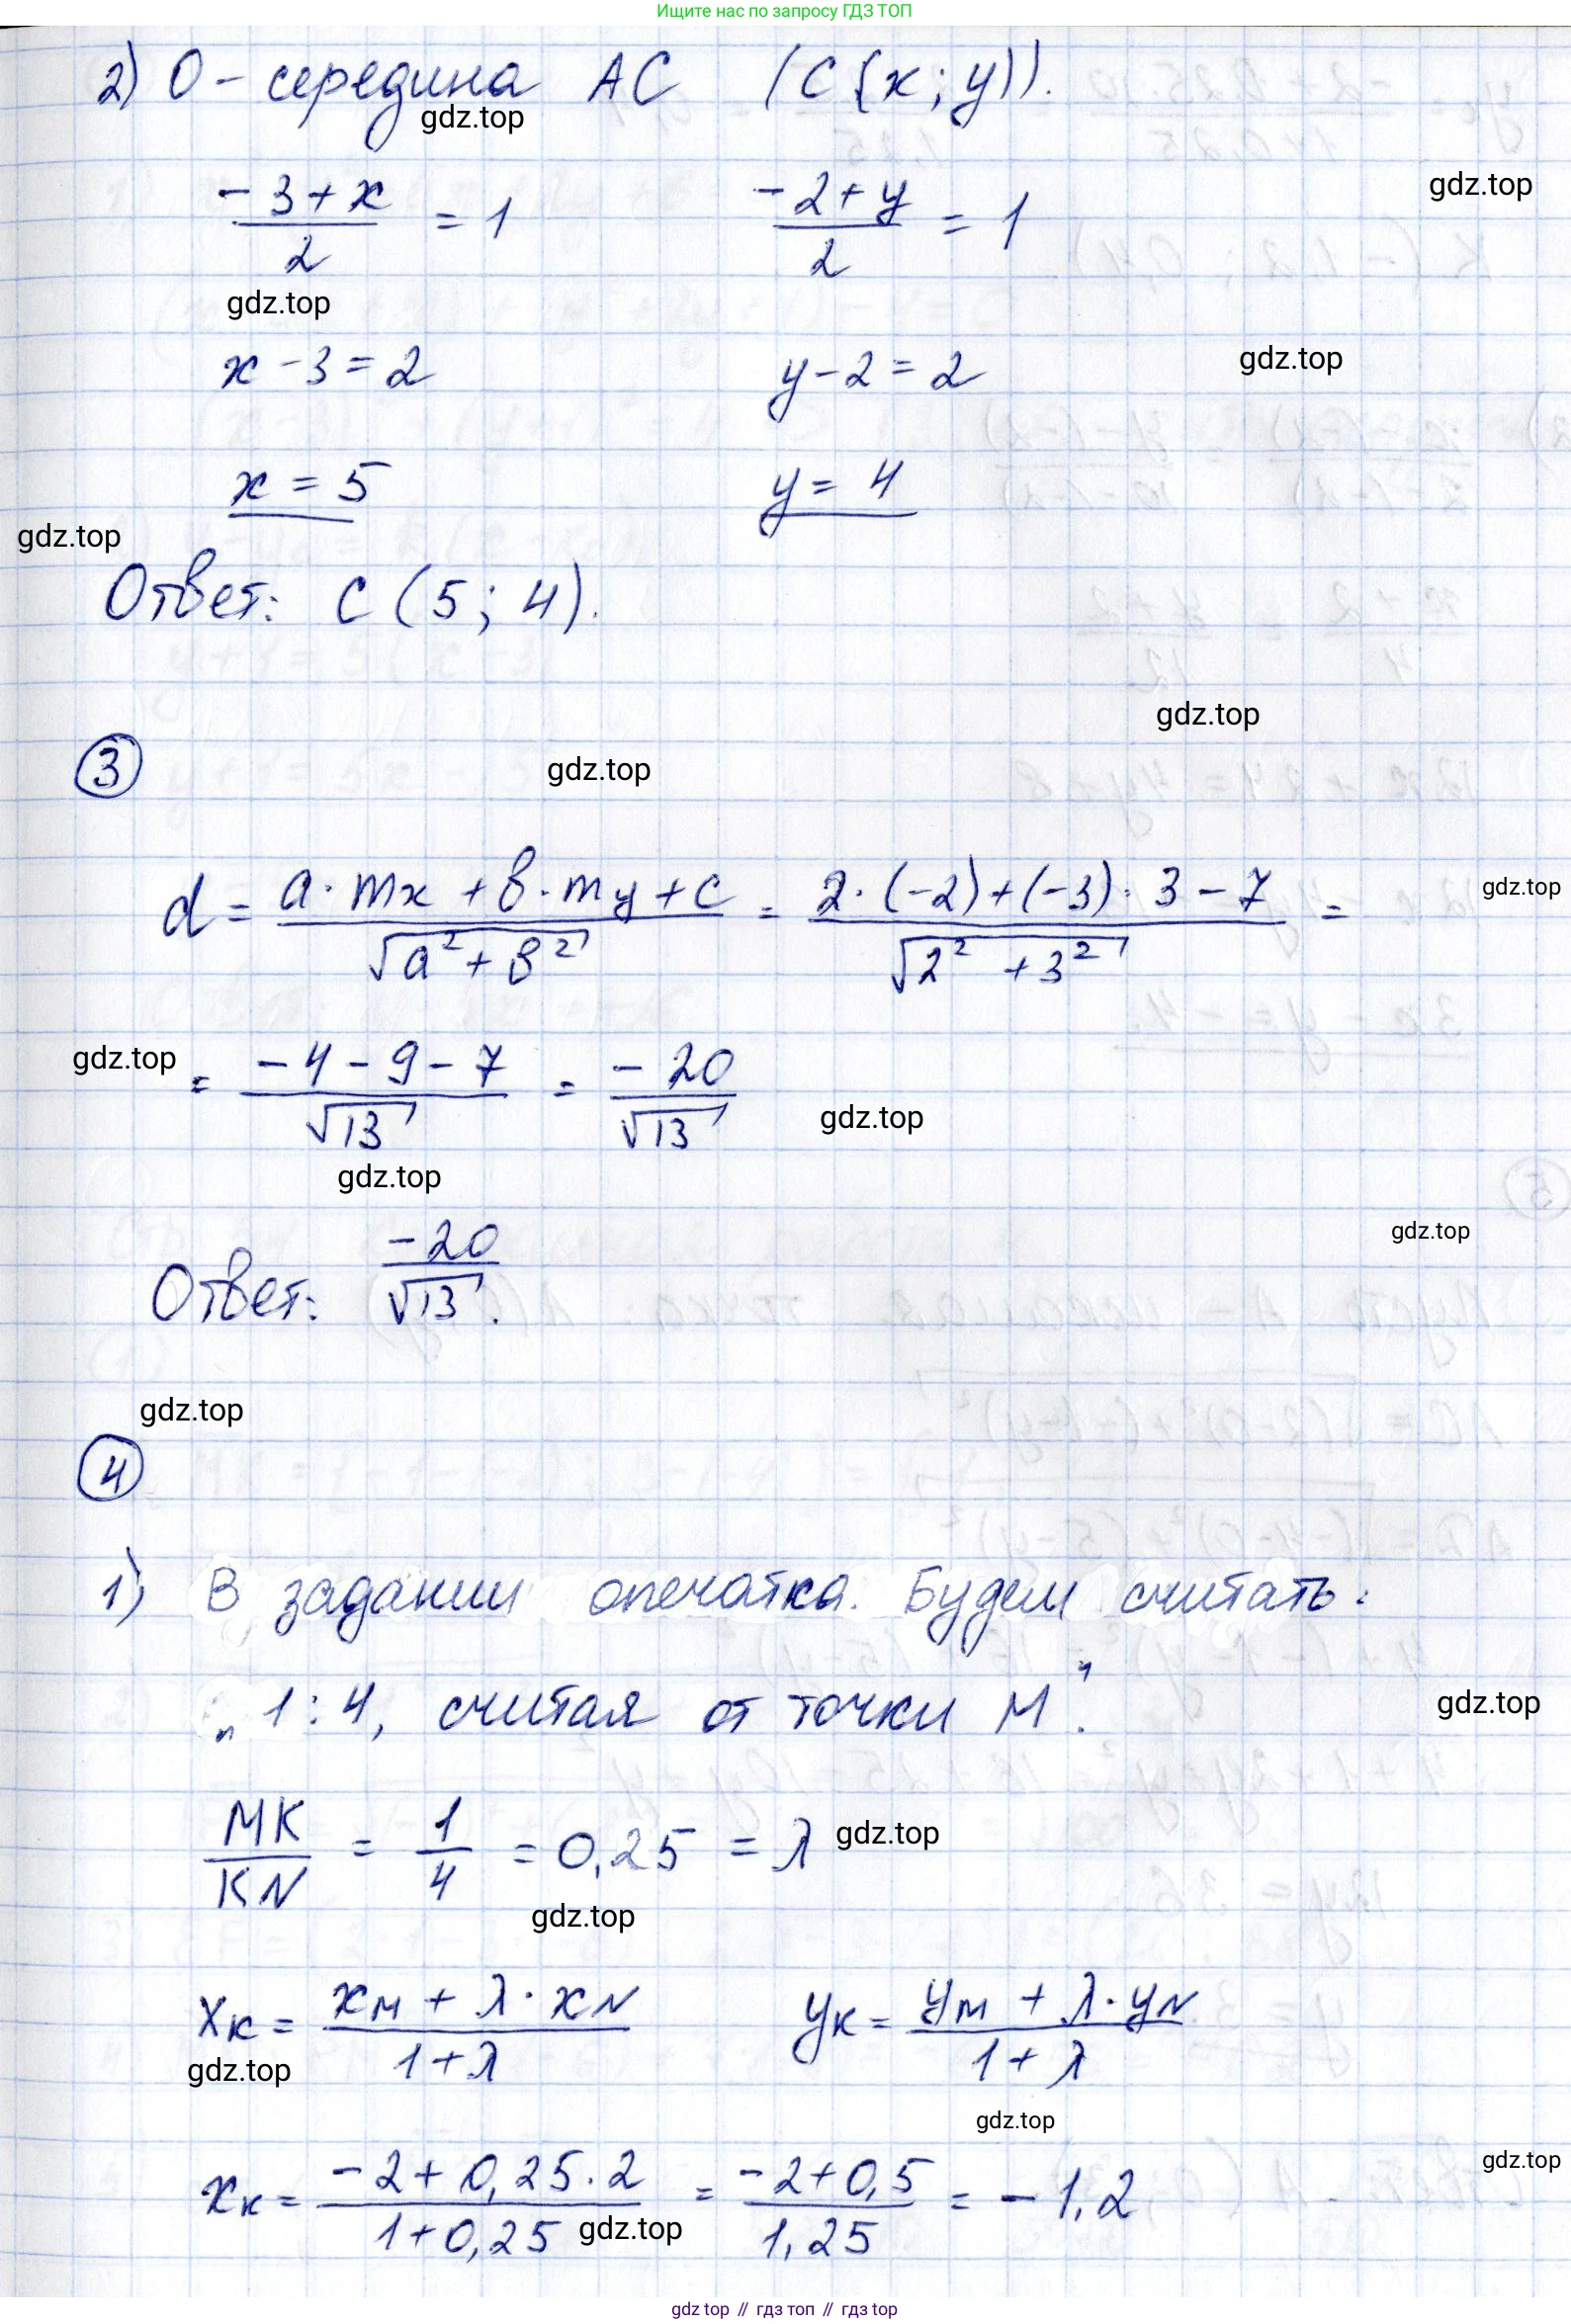 Ищите нас по запросу ГДЗ ТОП
2) О - середина АС (С{x; y)).
gdz.top
gdz.top
(-3+x)/2 = 1 (-2+y)/2 = 1
gdz.top
x - 3 = 2 y - 2 = 2
gdz.top
x = 5 y = 4
gdz.top
Ответ: С (5; 4).
gdz.top
3
gdz.top
d = (a · mx + b · my + c)/√(a² + b²) = (2 · (-2) + (-3) · 3 - 7)/√(2² + 3²) =
gdz.top
gdz.top
= (-4 - 9 - 7)/√13 = -20/√13
gdz.top
gdz.top
gdz.top
Ответ: -20/√13.
gdz.top
4
1) В задании опечатка. Будем считать:
„1:4, считая от точки М".
gdz.top
MK/KN = 1/4 = 0,25 = λ
gdz.top
gdz.top
xк = (xм + λ · xN)/(1+λ) yк = (yм + λ · yN)/(1+λ)
gdz.top
gdz.top
xк = (-2 + 0,25 · 2)/(1+0,25) = (-2+0,5)/1,25 = -1,2
gdz.top
gdz.top
gdz top // гдз топ // гдз top